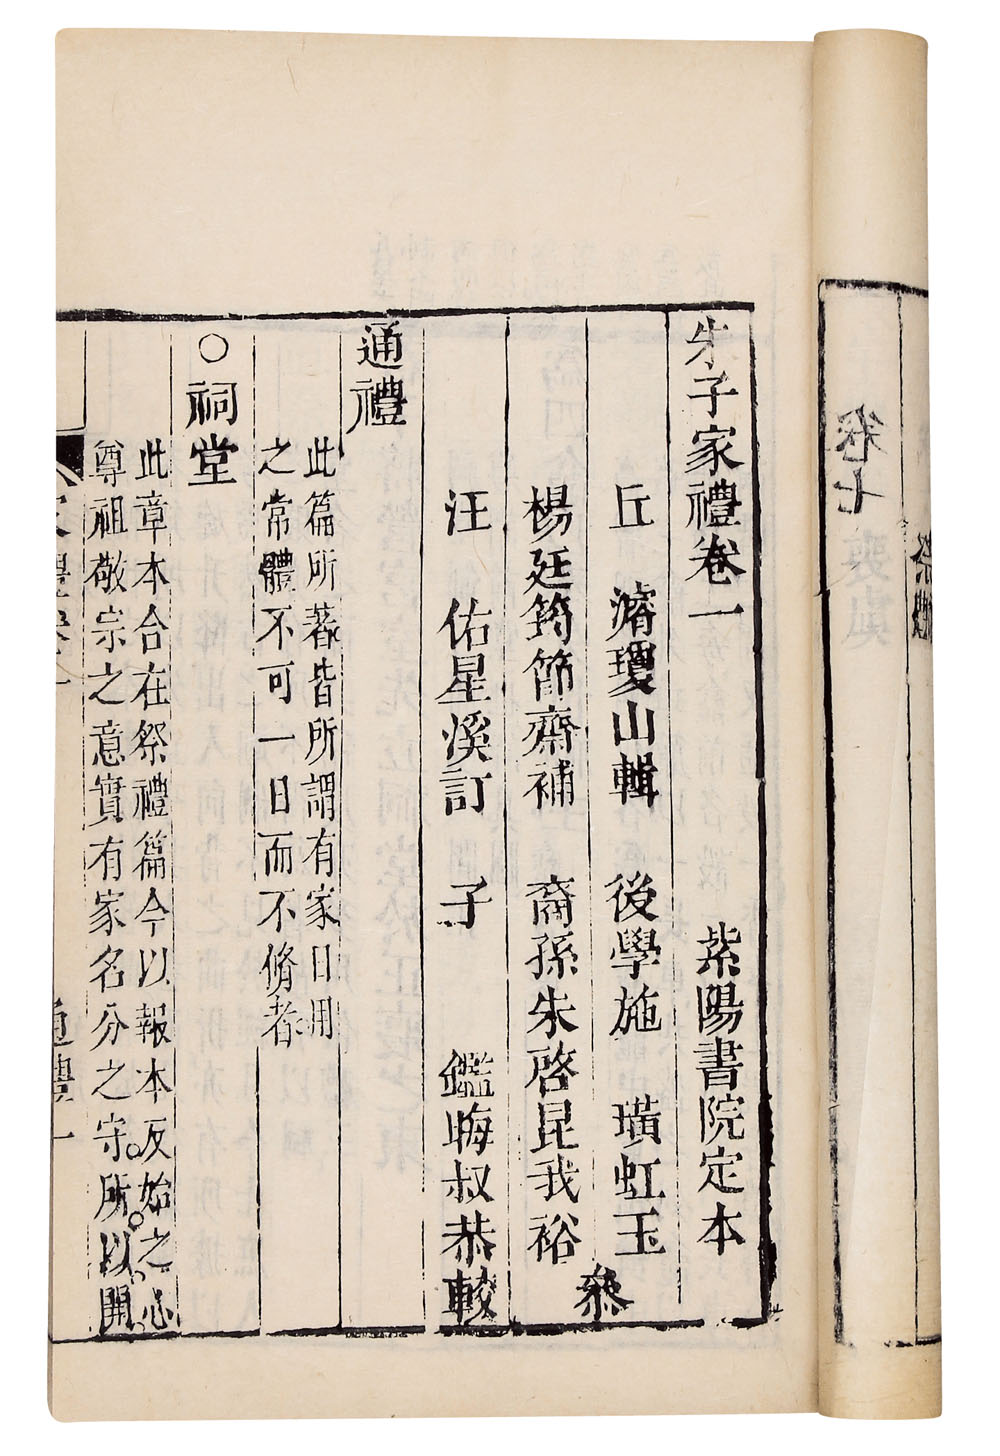 朱子家禮卷一　紫陽書院定本
丘　濬瓊山輯　後學施　璜虹玉
楊廷筠節齋補　裔孫朱啓昆我裕　叅
汪　佑星溪訂　子　鑑晦叔恭較
通禮
此篇所著皆所謂有家日用
之常體不可一日而不脩者
○祠堂
此章本合在祭禮篇今以報本反始之心
尊祖敬宗之意實有家名分之守所以開
通禮　一
卷七